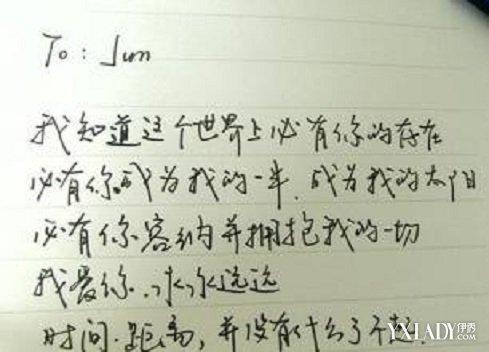 To: Jun
我知道这个世界上必有你的存在
必有你成为我的一半.成为我的太阳
必有你容纳并拥抱我的一切
我爱你.永永远远
时间.距离,并没有什么了不起.
YXLADY.COM 伊秀